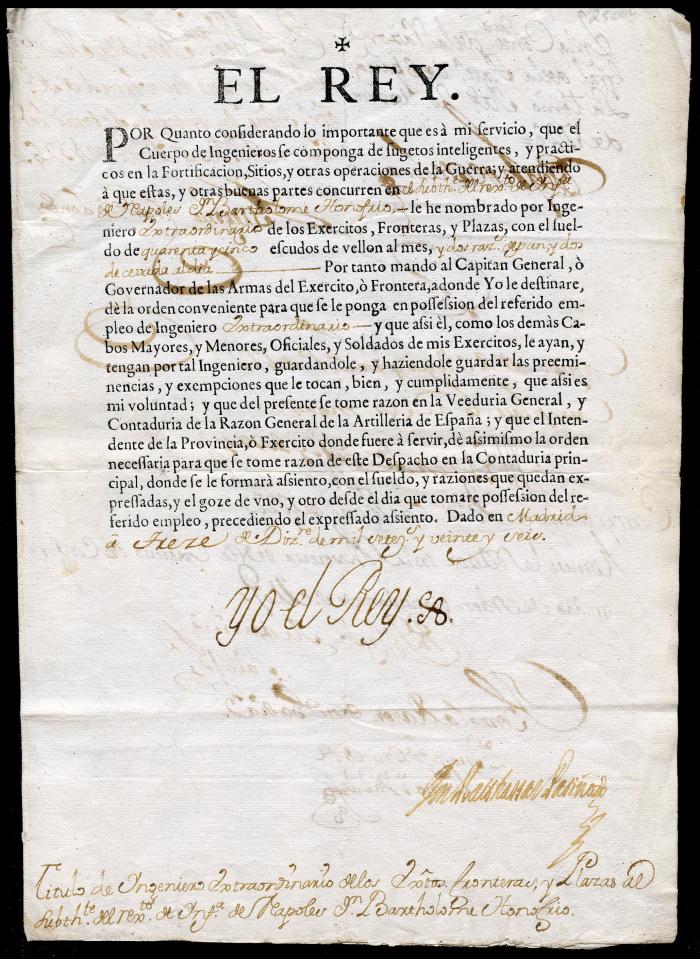 EL REY.
POR Quanto considerando lo importante que es à mi servicio, que el
Cuerpo de Ingenieros se componga de sugetos inteligentes, y practi-
cos en la Fortificacion, Sitios, y otras operaciones de la Guerra; y atendiendo
à que estas, y otras buenas partes concurren en el Subth.te del rex.to de Inf.a
de Napoles Dn. Bartholome Honofrio.— le he nombrado por Inge-
niero Extraordinario de los Exercitos, Fronteras, y Plazas, con el suel-
do de quarenta y cinco escudos de vellon al mes, y dos raz.s de pan, y dos
de cevada al dia — Por tanto mando al Capitan General, ò
Governador de las Armas del Exercito, ò Frontera, adonde Yo le destináre,
dè la orden conveniente para que se le ponga en possession del referido em-
pleo de Ingeniero Extraordinario — y que assi èl, como los demàs Ca-
bos Mayores, y Menores, Oficiales, y Soldados de mis Exercitos, le ayan, y
tengan por tal Ingeniero, guardandole, y haziendole guardar las preemi-
nencias, y exempciones que le tocan, bien, y cumplidamente, que assi es
mi voluntad; y que del presente se tome razon en la Veeduria General, y
Contaduria de la Razon General de la Artilleria de España; y que el Inten-
dente de la Provincia, ò Exercito donde fuere à servir, dè assimismo la orden
necessaria para que se tome razon de este Despacho en la Contaduria prin-
cipal, donde se le formarà assiento, con el sueldo, y raziones que quedan ex-
pressadas, y el goze de vno, y otro desde el dia que tomare possession del re-
ferido empleo, precediendo el expressado assiento. Dado en Madrid
à treze de Diz.re de mil setez.s y veinte y seis.
Yo el Rey.
Dn Balthassar Patiño
Titulo de Ingeniero Extraordinario de los Exttos. fronteras, y Plazas al
Subth.te del rex.to de Inf.a de Napoles Dn. Bartholome Honofrio.